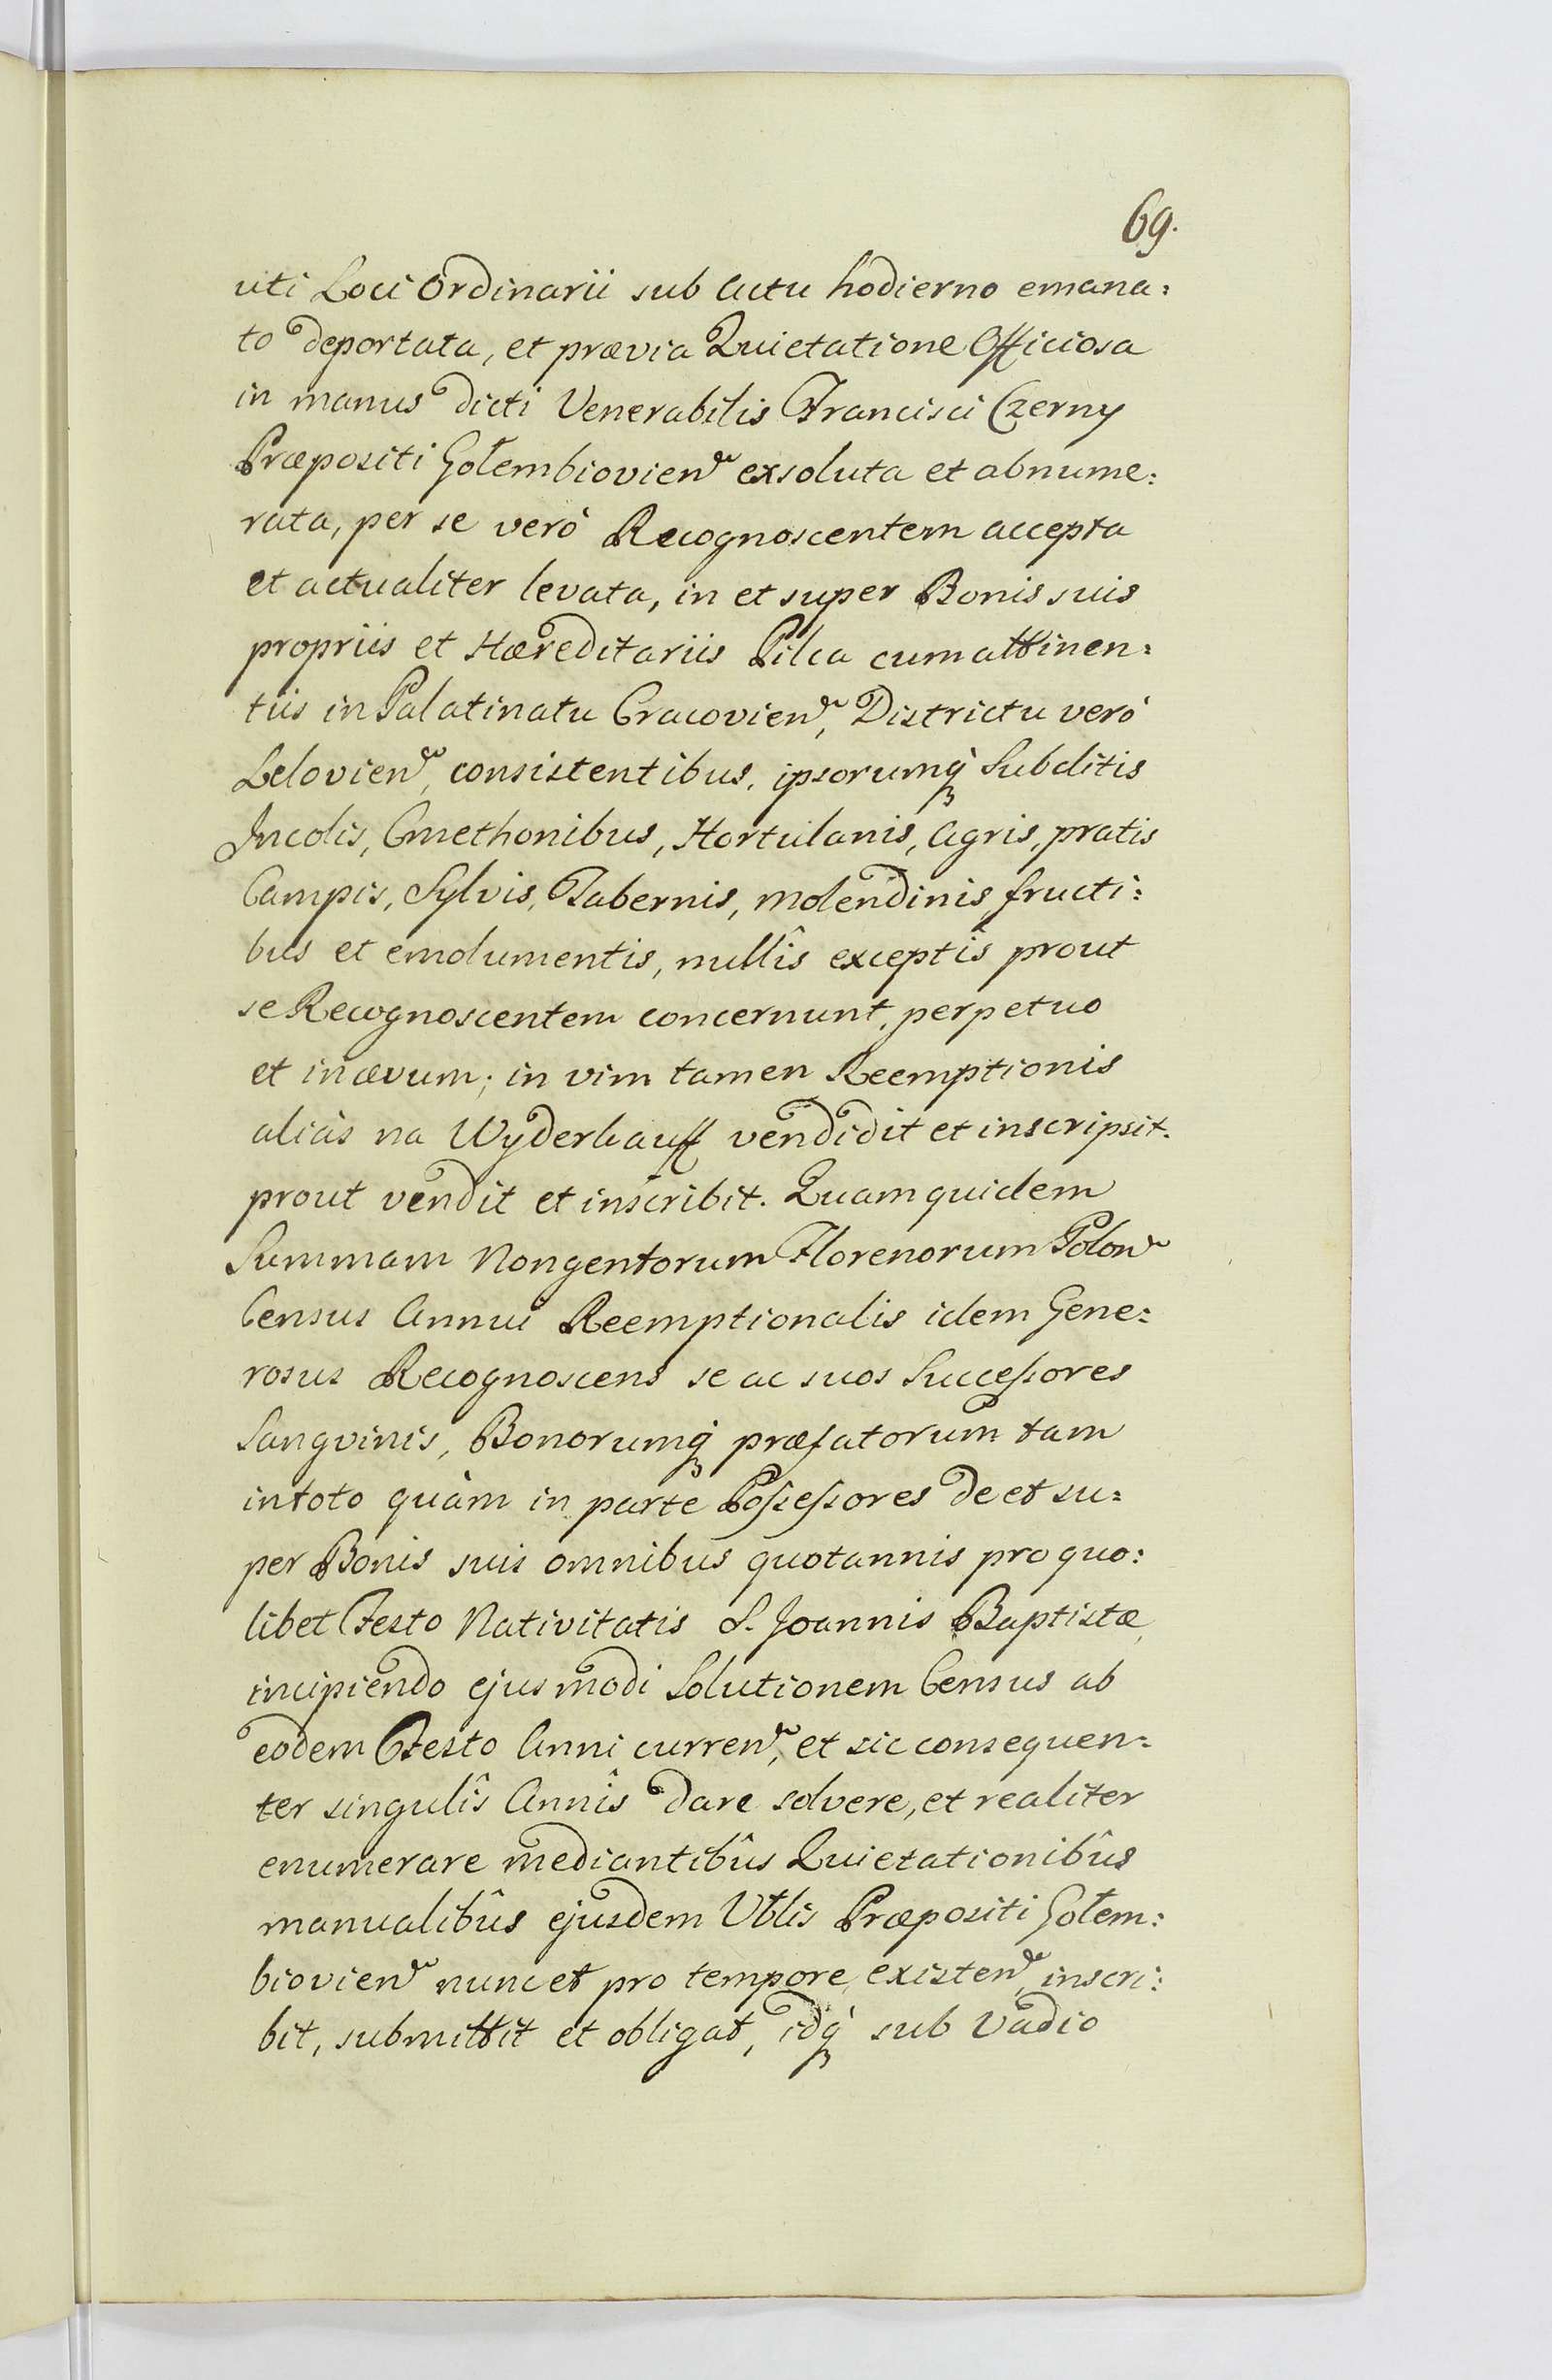 69.
uti Loci Ordinarii sub Actu hodierno emana:
to deportata, et prævia Quietatione Officiosa
in manus dicti Venerabilis Francisci Czerny
Præpositi Gołembiovien. exsoluta et abnume:
rata, per se verò Recognoscentem accepta
et actualiter levata, in et super Bonis suis
propriis et Hæreditariis Pilca cum attinen:
tiis in Palatinatu Cracovien. Districtu verò
Lelovien. consistentibus, ipsorumq̀ Subditis
Incolis, Cmethonibus, Hortulanis, Agris, pratis
Campis, Sylvis, Tabernis, Molendinis fructi:
bus et emolumentis, nullîs exceptîs prout
se Recognoscentem concernunt, perpetuo
et in ævum; in vim tamen Reemptionis
aliàs na Wyderkauff vendidit et inscripsit.
prout vendit et inscribit. Quam quidem
Summam Nongentorum Florenorum Polon.
Census Annui Reemptionalis idem Gene:
rosus Recognoscens se ac suos Successores
Sangvinis, Bonorumq̀ præfatorum tam
in toto quàm in parte Possessores de et su:
per Bonis suis omnibus quotannis pro quo:
libet Festo Nativitatis S. Joannis Baptistæ
incipiendo ejusmodi Solutionem Census ab
eodem Festo Anni curren. et sic consequen:
ter singulîs Annîs dare solvere, et realiter
enumerare mediantibûs Quietationibûs
manualibûs ejusdem Vblis Præpositi Gołem:
biovien. nunc et pro tempore existen. inscri:
bit, submittit et obligat, idq̀ sub Vadio